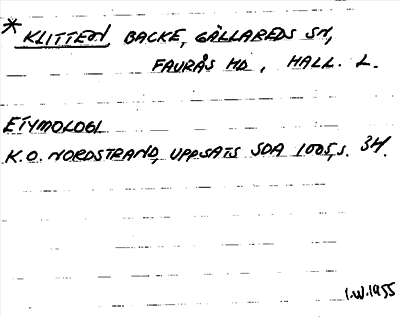 * KLITTEN BACKE, GÄLLAREDS SN,
FAURÅS HD, HALL. L.
ETYMOLOGI
K.O. NORDSTRAND, UPPSATS SOA 1005, S. 34.
I.W.1955